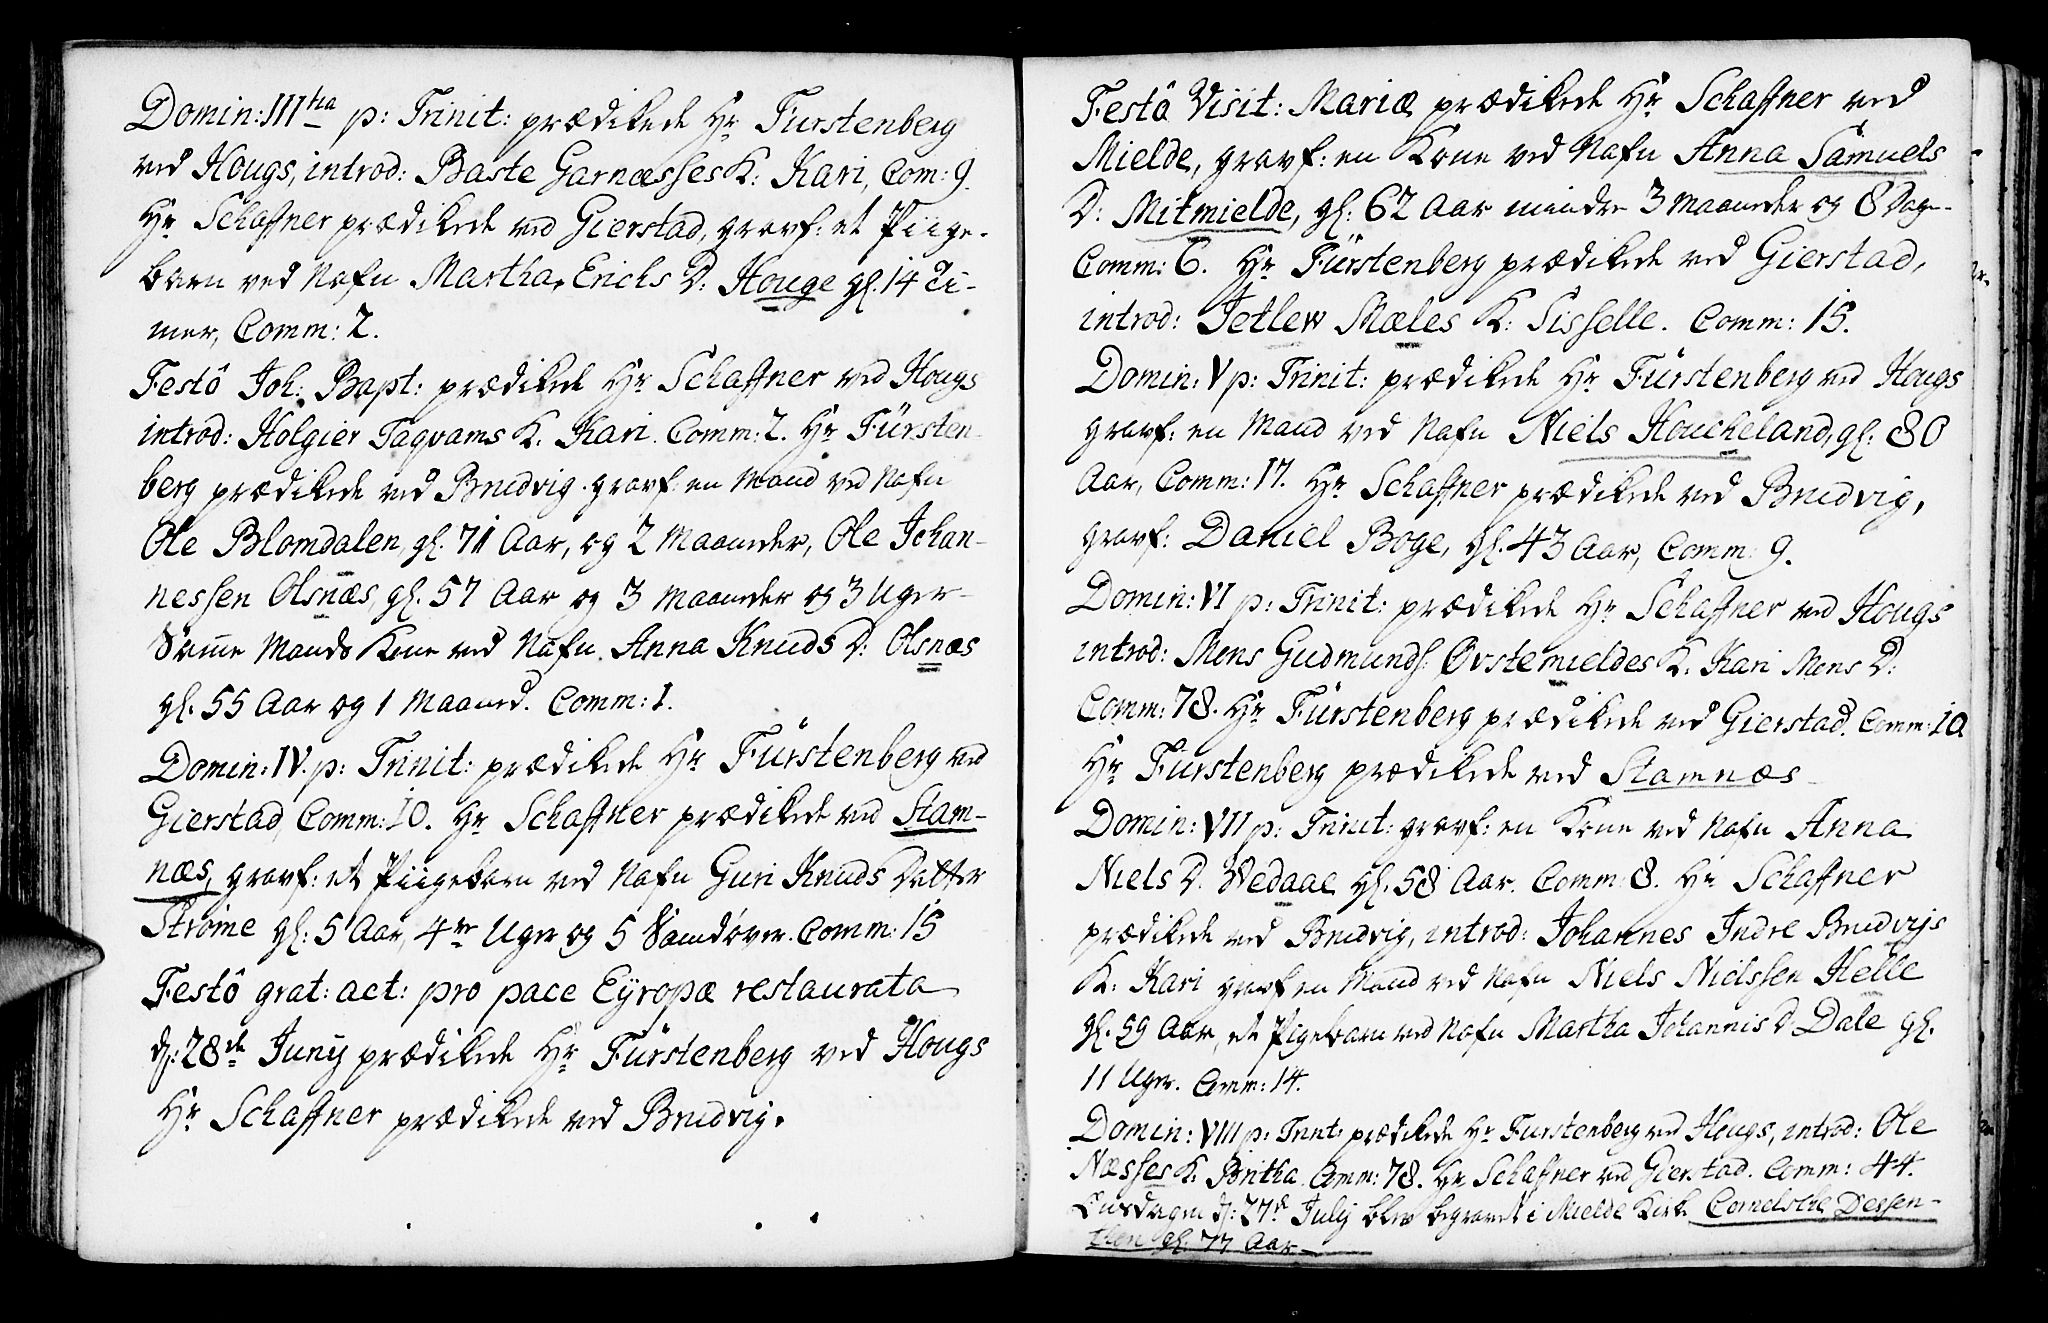 Domin: III tia p: Trinit: prædikede Hr Furstenberg
ved Hougs, introd: Baste Garnæsses K: Kari, Com: 9.
Hr Schaffner prædikede ved Gierstad, gravf: et Piige-
barn ved Nafn Martha Erichs D: Houge gl. 14 Ti-
mer, Comm: 2.
Festô Joh: Bapt: prædikede Hr Schaffner ved Hougs
introd: Holgier Tagvams K. Kari. Comm: 2. Hr Fürsten-
berg prædikede ved Brudvig. gravf: en Mand ved Nafn
Ole Blomdalen, gl. 71 Aar, og 2 Maaneder, Ole Johan-
nessen Olsnæs, gl. 57 Aar og 3 Maaneder og 3 Uger-
Samme Mands Kone ved Nafn Anna Knuds D: Olsnæs
gl. 55 Aar og 1 Maaned. Comm: 1.
Domin: IV. p: Trinit: prædikede Hr Fürstenberg ved
Gierstad, Comm: 10. Hr Schaffner prædikede ved Stam-
næs, gravf: et Piigebarn ved Nafn Guri Knuds Datter
Strøme gl: 5 Aar, 4re Uger og 5 Comm: 15
Festô grat: act: pro pace Eÿropæ restaurata
d: 28de Junij prædikede Hr Fürstenberg ved Hougs
Hr Schaffner prædikede ved Brudvig.
Festô Visit: Mariæ prædikede Hr Schaffner ved
Mielde, gravf: en Kone ved Nafn Anna Samuels
D: Mitmielde, gl: 62 Aar mindre 3 Maaneder og 8 Dage-
Comm: 6. Hr Fürstenberg prædikede ved Gierstad,
introd: Jetlew Mæles K: Sisselle. Comm: 15.
Domin: V p: Trinit: prædikede Hr Fürstenberg ved Hougs
gravf: en Mand ved Nafn Niels Houcheland, gl: 80
Aar, Comm: 17. Hr Schaffner prædikede ved Brudvig,
gravf: Daniel Boge, gl. 43 Aar, Comm: 9.
Domin: VI p: Trinit: prædikede Hr Schaffner ved Hougs
introd: Mons Gudmunds: Øvstemieldes K. Kari Mons D:
Comm: 78. Hr Fürstenberg prædikede ved Gierstad. Comm: 10
Hr Furstenberg prædikede ved Stamnæs
Domin: VII p: Trinit: gravf: en Kone ved Nafn Anna
Niels D. Vedaae gl: 58 Aar. Comm: 8. Hr Schaffner
prædikede ved Brudvig, introd: Johannes Indre Brudvigs
K: Kari gravf en Mand ved Nafn Niels Nielssen Helle
gl. 59 Aar, et Pigebarn ved Nafn Martha Johannis D. Dale gl.
11 Uger. Comm: 14.
Domin: VIII p: Trint: prædikede Hr Furstenberg ved Hougs, introd: Ole
Næsses K. Britha. Comm: 78. Hr Schaffner ved Gierstad. Comm: 44.
d: 27d Julij blev begravet i Mielde Kirke Cornelsche Dessen-
then gl. 77 Aar